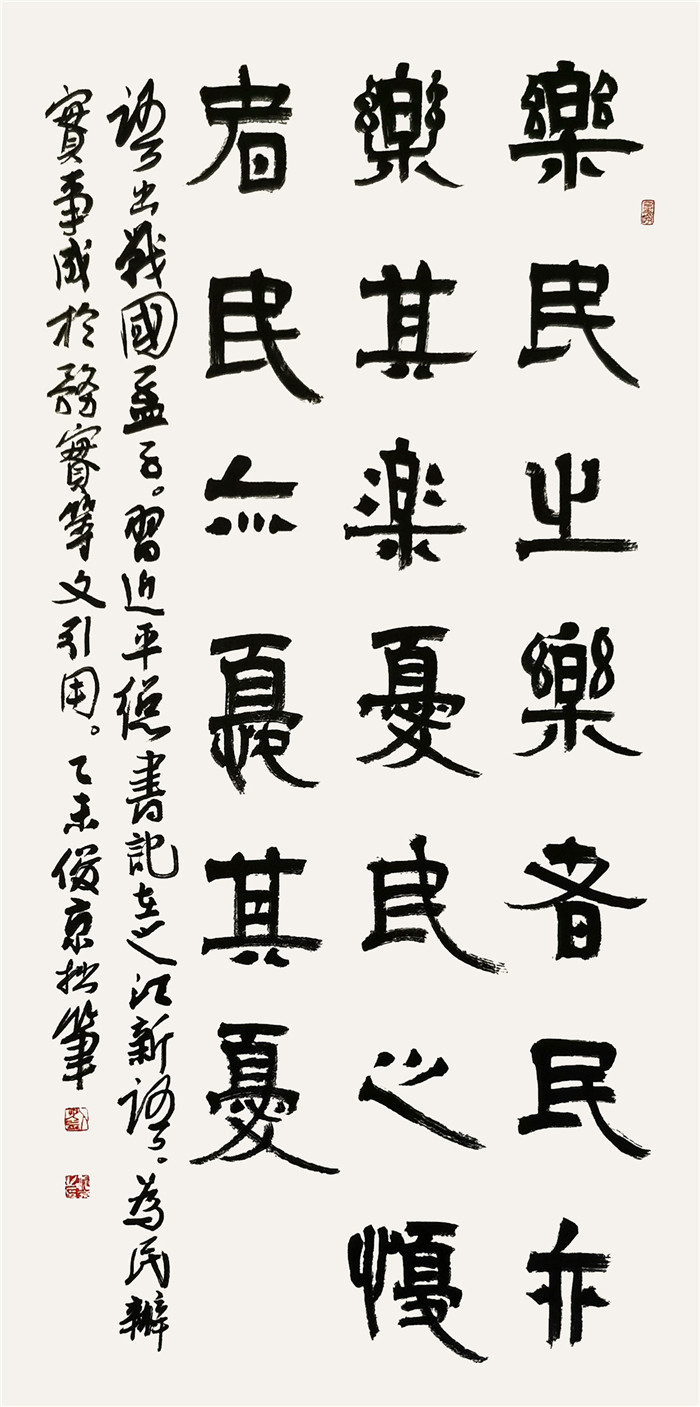 樂民之樂者民亦
樂其楽憂民之懮
者民亦憂其憂
語出戰國孟子。習近平總書記在之江新語、為民辦
實事成於務實等文引用。乙未俊京拙筆